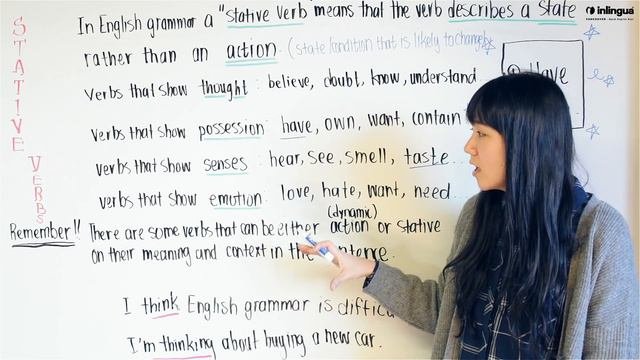 STATIVE VERBS
In English grammar a "stative verb means that the verb describes a state
rather than an action. (state/condition that is likely to change)
verbs that show thought : believe, doubt, know, understand
verbs that show possession: have, own, want, contain
verbs that show senses : hear, see, smell, taste...
verbs that show emotion: love, hate, want, need...
Remember!! There are some verbs that can be either action or stative
(dynamic)
on their meaning and context in the sentence.
I think English grammar is
I'm thinking about buying a new car.
Have
inlingua